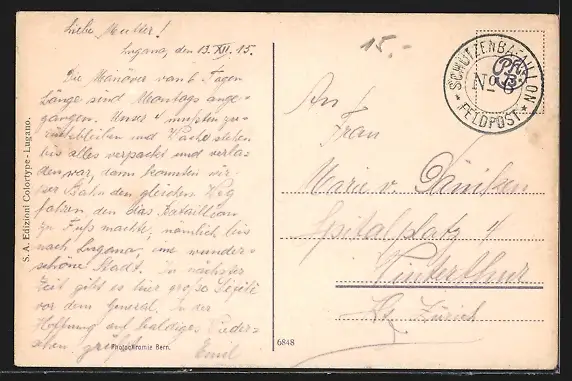 Liebe Mutter!
Lugano, den 13. XII. 15.
Die Manöver von 6 Tagen
Länge sind Montags ange-
gangen. Unser 4 mußten zu-
rückbleiben und Wache stehen
bis alles verpackt und verla-
den war, dann konnten wir
per Bahn den gleichen Weg
fahren, den das Bataillon
zu Fuß machte; nämlich bis
nach Lugano, eine wunder-
schöne Stadt. In nächster
Zeit gibt es hier große Defilé
vor dem General. In der
Hoffnung auf baldiges Wieder-
sehen grüßt
Emil
S. A. Edizioni Colortype - Lugano.
Photochromie Bern.
6848
15.-
SCHÜTZENBATAILLON
No. 6
FELDPOST
An
Frau
Marie v. Däniken
Spitalplatz 4
Winterthur
Kt. Zürich